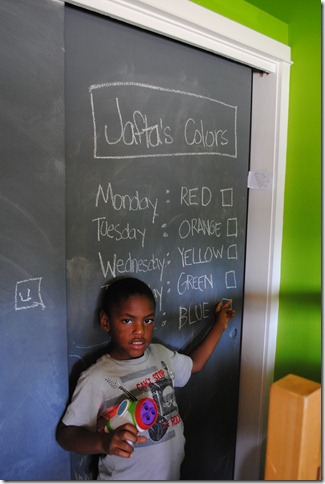 Jafta's Colors
Monday : RED
Tuesday : ORANGE
Wednesday : YELLOW
: GREEN
: BLUE